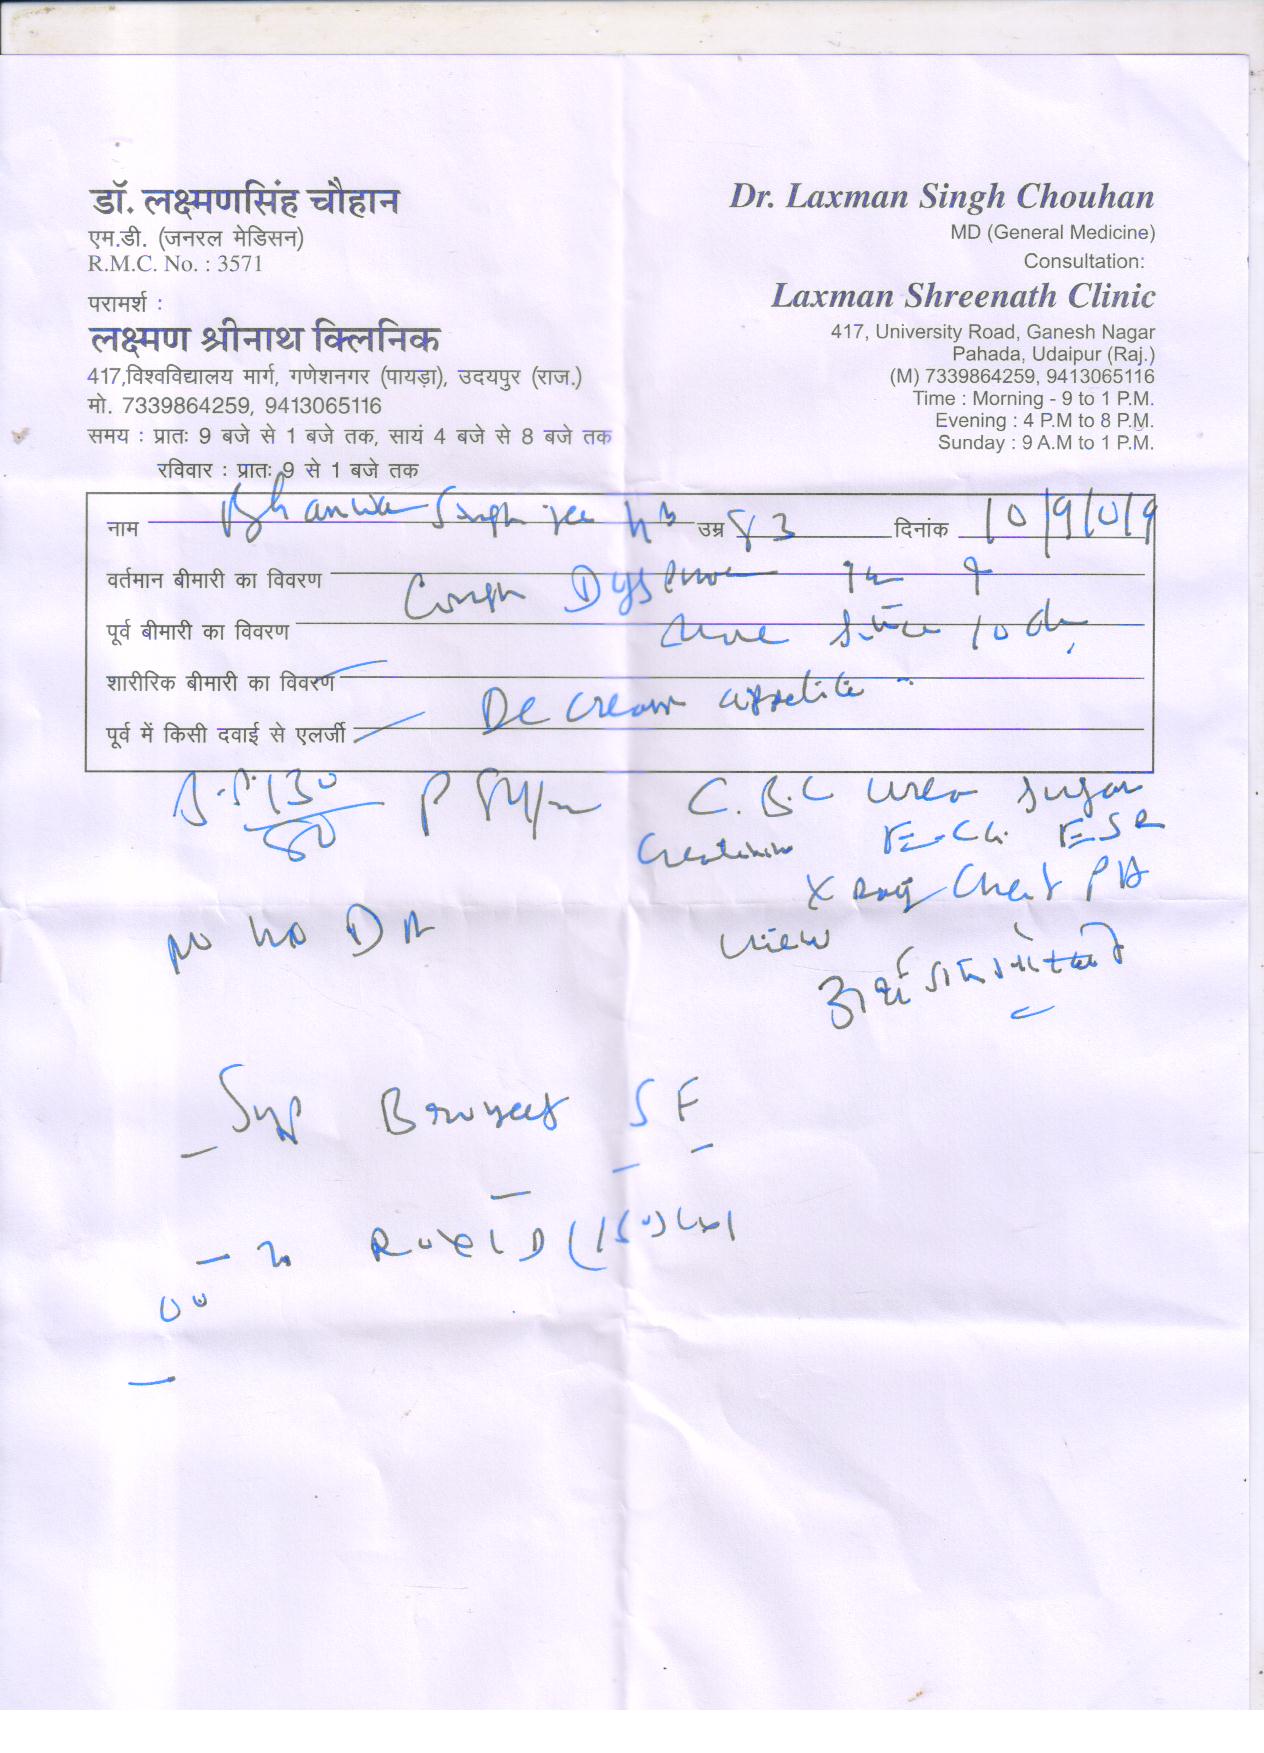 डॉ. लक्ष्मणसिंह चौहान
एम.डी. (जनरल मेडिसन)
R.M.C. No. : 3571
परामर्श :
लक्ष्मण श्रीनाथ क्लिनिक
417,विश्वविद्यालय मार्ग, गणेशनगर (पायड़ा), उदयपुर (राज.)
मो. 7339864259, 9413065116
समय : प्रातः 9 बजे से 1 बजे तक, सायं 4 बजे से 8 बजे तक
रविवार : प्रातः 9 से 1 बजे तक
Dr. Laxman Singh Chouhan
MD (General Medicine)
Consultation:
Laxman Shreenath Clinic
417, University Road, Ganesh Nagar
Pahada, Udaipur (Raj.)
(M) 7339864259, 9413065116
Time : Morning - 9 to 1 P.M.
Evening : 4 P.M to 8 P.M.
Sunday : 9 A.M to 1 P.M.
नाम Bhanwar Singh jee उम्र 83 दिनांक 10/9/019
वर्तमान बीमारी का विवरण Cough
पूर्व बीमारी का विवरण since 10
शारीरिक बीमारी का विवरण
पूर्व में किसी दवाई से एलर्जी Decrease appetite
B.P. 130/80 P C.B.C Urea Sugar
Creatinin E.C.G. ESR
X Ray Chest PA
view
Syp SF
Roxid (150)